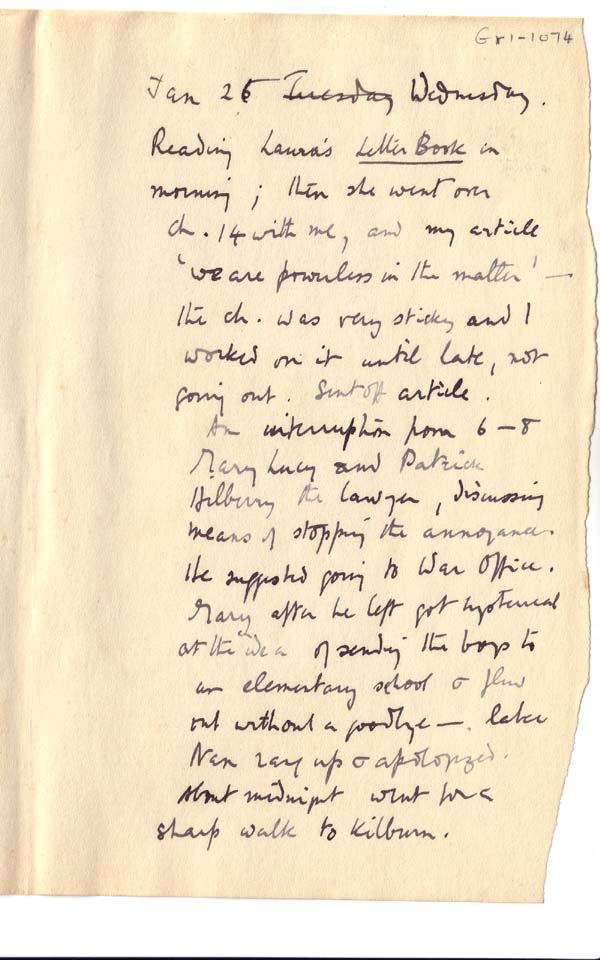 Gr1-1074
Jan 26 Tuesday Wednesday.
Reading Laura's Letter Book in
morning; then she went over
ch. 14 with me, and my article
'we are powerless in the matter' —
the ch. was very sticky and I
worked on it until late, not
going out. Sent off article.
An interruption from 6 – 8
Mary Lucy and Patrick
Hilberry the lawyer, discussing
means of stopping the annoyance.
He suggested going to War Office.
Mary after he left got hysterical
at the idea of sending the boys to
an elementary school & flew
out without a goodbye —. later
Nan rang up & apologized.
About midnight went for a
sharp walk to Kilburn.